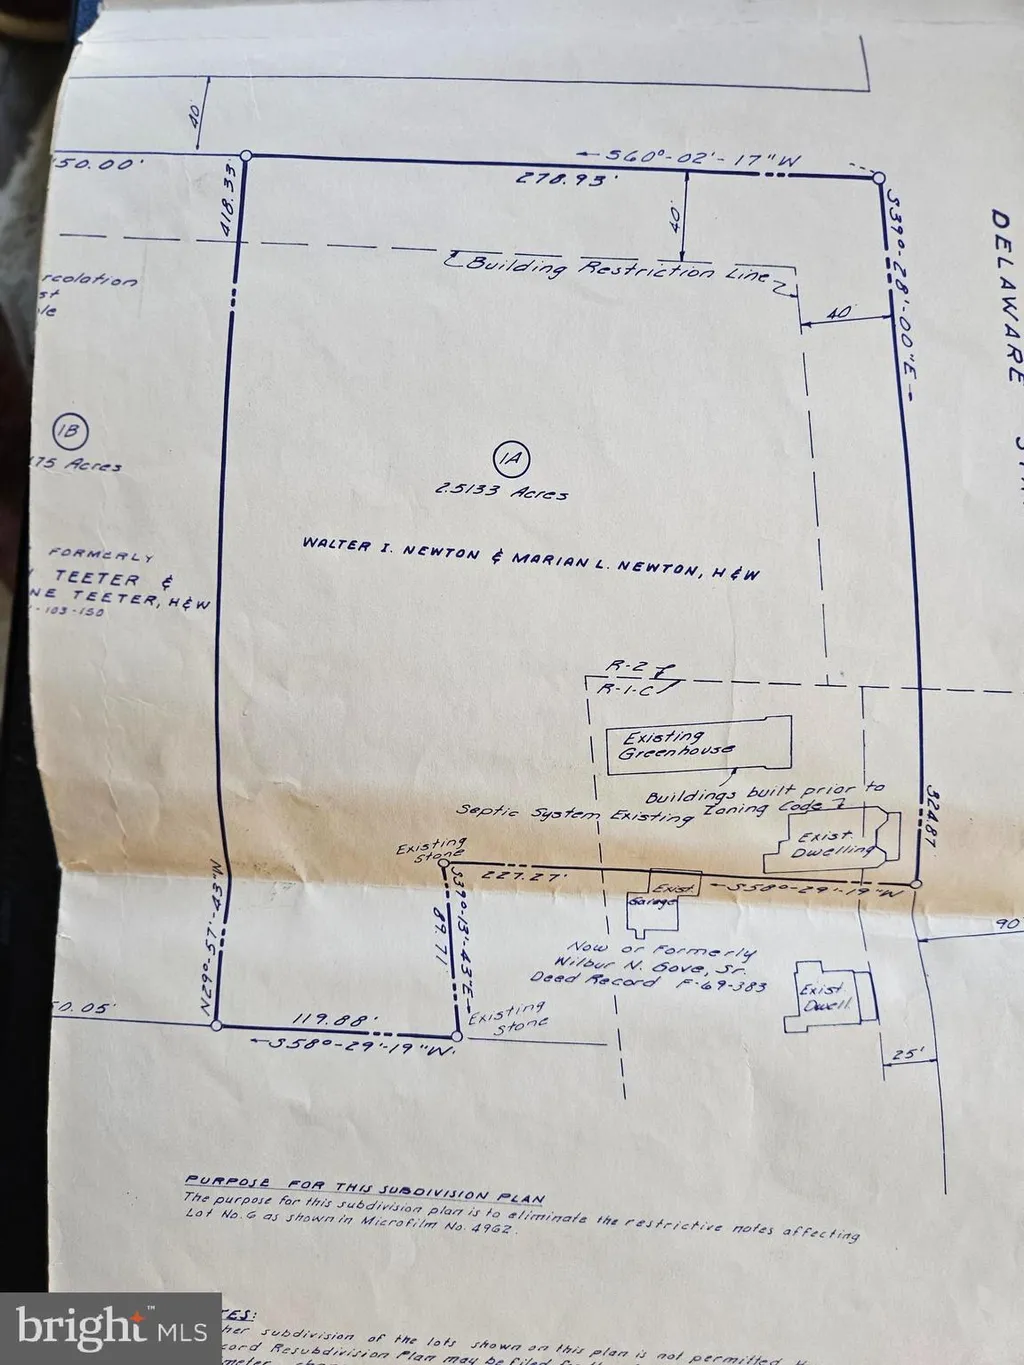 40'
50.00'
418.33'
←S60°-02'-17"W
278.93'
40'
S39°-28'-00"E→
DELAWARE
Building Restriction Line
40'
rcolation
st
le
1B
175 Acres
1A
2.5133 Acres
FORMERLY
TEETER &
NE TEETER, H&W
-103-150
WALTER I. NEWTON & MARIAN L. NEWTON, H&W
R-2
R-1-C
Existing
Greenhouse
Buildings built prior to
Zoning Code
Septic System Existing
324.87
Exist.
Dwelling
Existing
Stone
227.27'
←S58°-29'-19"W
N29°-57'-43"W
89.71'
S39°-13'-43"E→
Exist.
Garage
90'
Now or Formerly
Wilbur N. Gove, Sr.
Deed Record F-69-383
Exist.
Dwell.
Existing
Stone
0.05'
119.88'
←S58°-29'-19"W
25'
PURPOSE FOR THIS SUBDIVISION PLAN
The purpose for this subdivision plan is to eliminate the restrictive notes affecting
Lot No. 6 as shown in Microfilm No. 4962.
ES:
her subdivision of the lots shown on this plan is not permitted
cord Resubdivision Plan may be filed
bright™ MLS